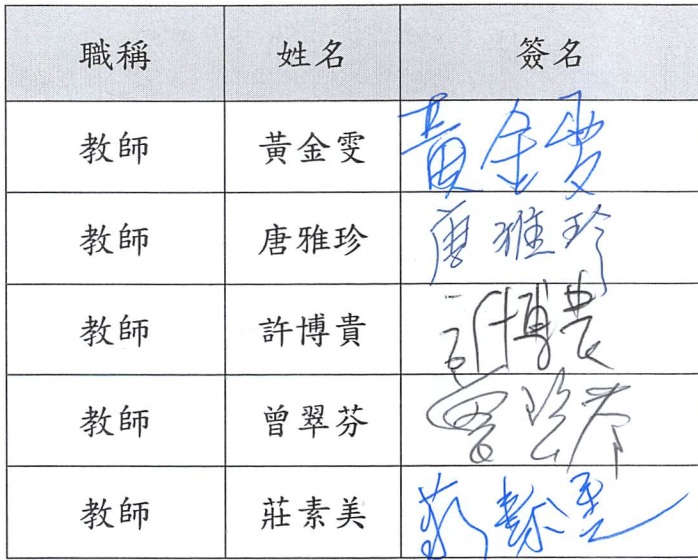 職稱 姓名 簽名
教師 黃金雯 黃金雯
教師 唐雅珍 唐雅珍
教師 許博貴 許博貴
教師 曾翠芬
教師 莊素美